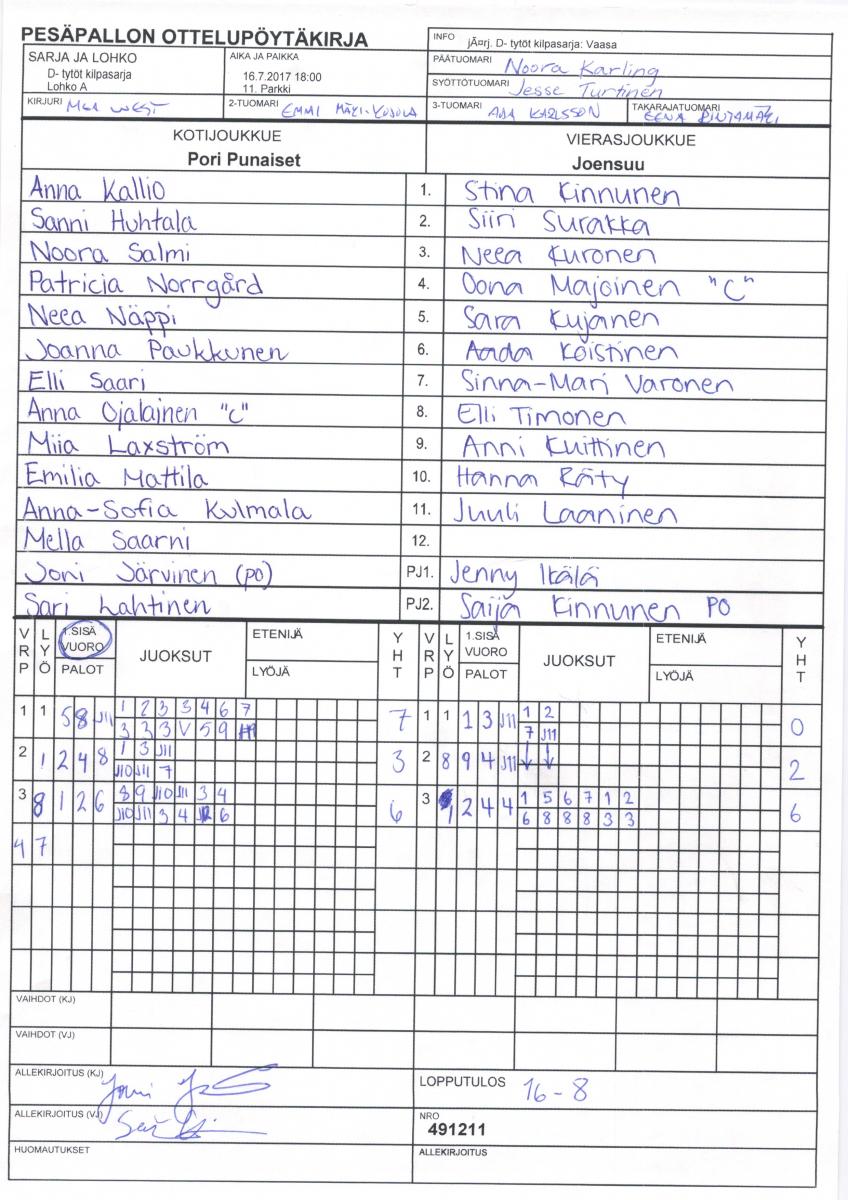 PESÄPALLON OTTELUPÖYTÄKIRJA
INFO jÃ¤rj. D- tytöt kilpasarja: Vaasa
SARJA JA LOHKO
D- tytöt kilpasarja
Lohko A
AIKA JA PAIKKA
16.7.2017 18:00
11. Parkki
PÄÄTUOMARI Noora Karling
SYÖTTÖTUOMARI Jesse Turtinen
KIRJURI MEA WEST
2-TUOMARI EMMI MÄKI-KOJOLA
3-TUOMARI ADA KARLSSON
TAKARAJATUOMARI EENA RINTAMÄKI
KOTIJOUKKUE
Pori Punaiset
VIERASJOUKKUE
Joensuu
Anna Kallio 1. Stina Kinnunen
Sanni Huhtala 2. Siiri Surakka
Noora Salmi 3. Neea Kuronen
Patricia Norrgård 4. Oona Majoinen "C"
Neea Näppi 5. Sara Kujanen
Joanna Paukkunen 6. Aada Koistinen
Elli Saari 7. Sinna-Mari Varonen
Anna Ojalainen "C" 8. Elli Timonen
Miia Laxström 9. Anni Kuittinen
Emilia Mattila 10. Hanna Räty
Anna-Sofia Kulmala 11. Juuli Laaninen
Mella Saarni 12.
Joni Järvinen (po) PJ1. Jenny Itälä
Sari Lahtinen PJ2. Saija Kinnunen PO
VRP LYÖ 1.SISÄ VUORO PALOT JUOKSUT ETENIJÄ LYÖJÄ YHT VRP LYÖ 1.SISÄ VUORO PALOT JUOKSUT ETENIJÄ LYÖJÄ YHT
1 1 5 8 J11 1 2 3 3 4 6 7 7 1 1 1 3 J11 1 2 0
3 3 3 V 5 9 7 J11
2 1 2 4 8 1 3 J11 3 2 8 9 4 J11 ↓ ↓ 2
J10 J11 7
3 8 1 2 6 8 9 J10 J11 3 4 6 3 1 2 4 4 1 5 6 7 1 2 6
J10 J11 3 4 6 6 8 8 8 3 3
4 7
VAIHDOT (KJ)
VAIHDOT (VJ)
ALLEKIRJOITUS (KJ)
LOPPUTULOS 16-8
ALLEKIRJOITUS (VJ)
NRO
491211
HUOMAUTUKSET
ALLEKIRJOITUS